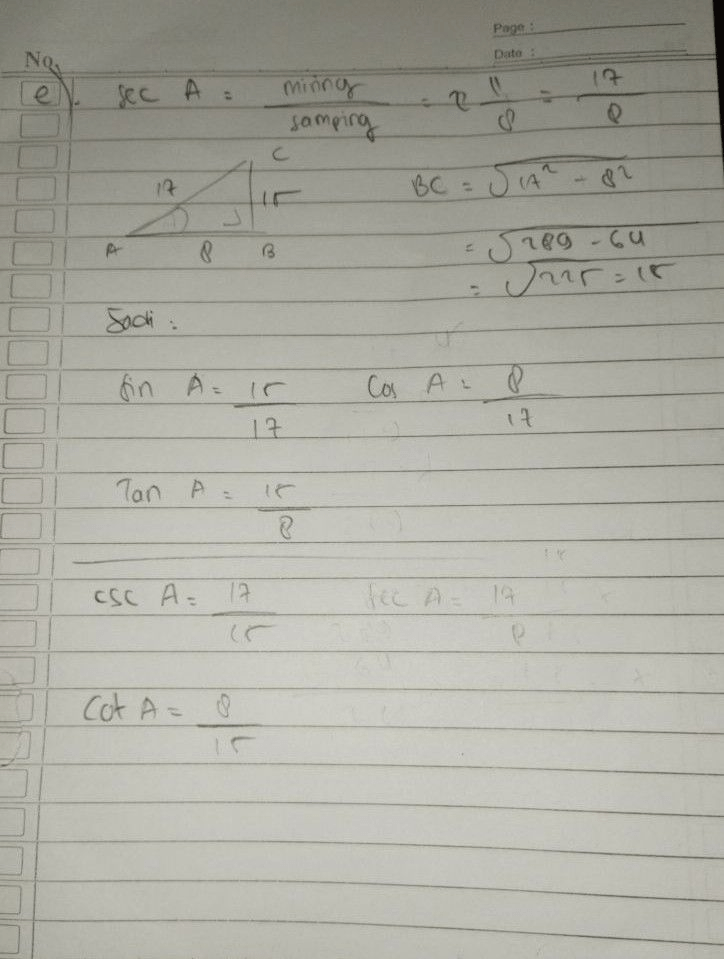 Page :
No. Date :
e). sec A = miring / samping = 2 1/8 = 17/8
C
17 15 BC = √17² - 8²
A 8 B = √289 - 64
= √225 = 15
Jadi :
Sin A = 15/17 Cos A = 8/17
Tan A = 15/8
csc A = 17/15 sec A = 17/8
Cot A = 8/15